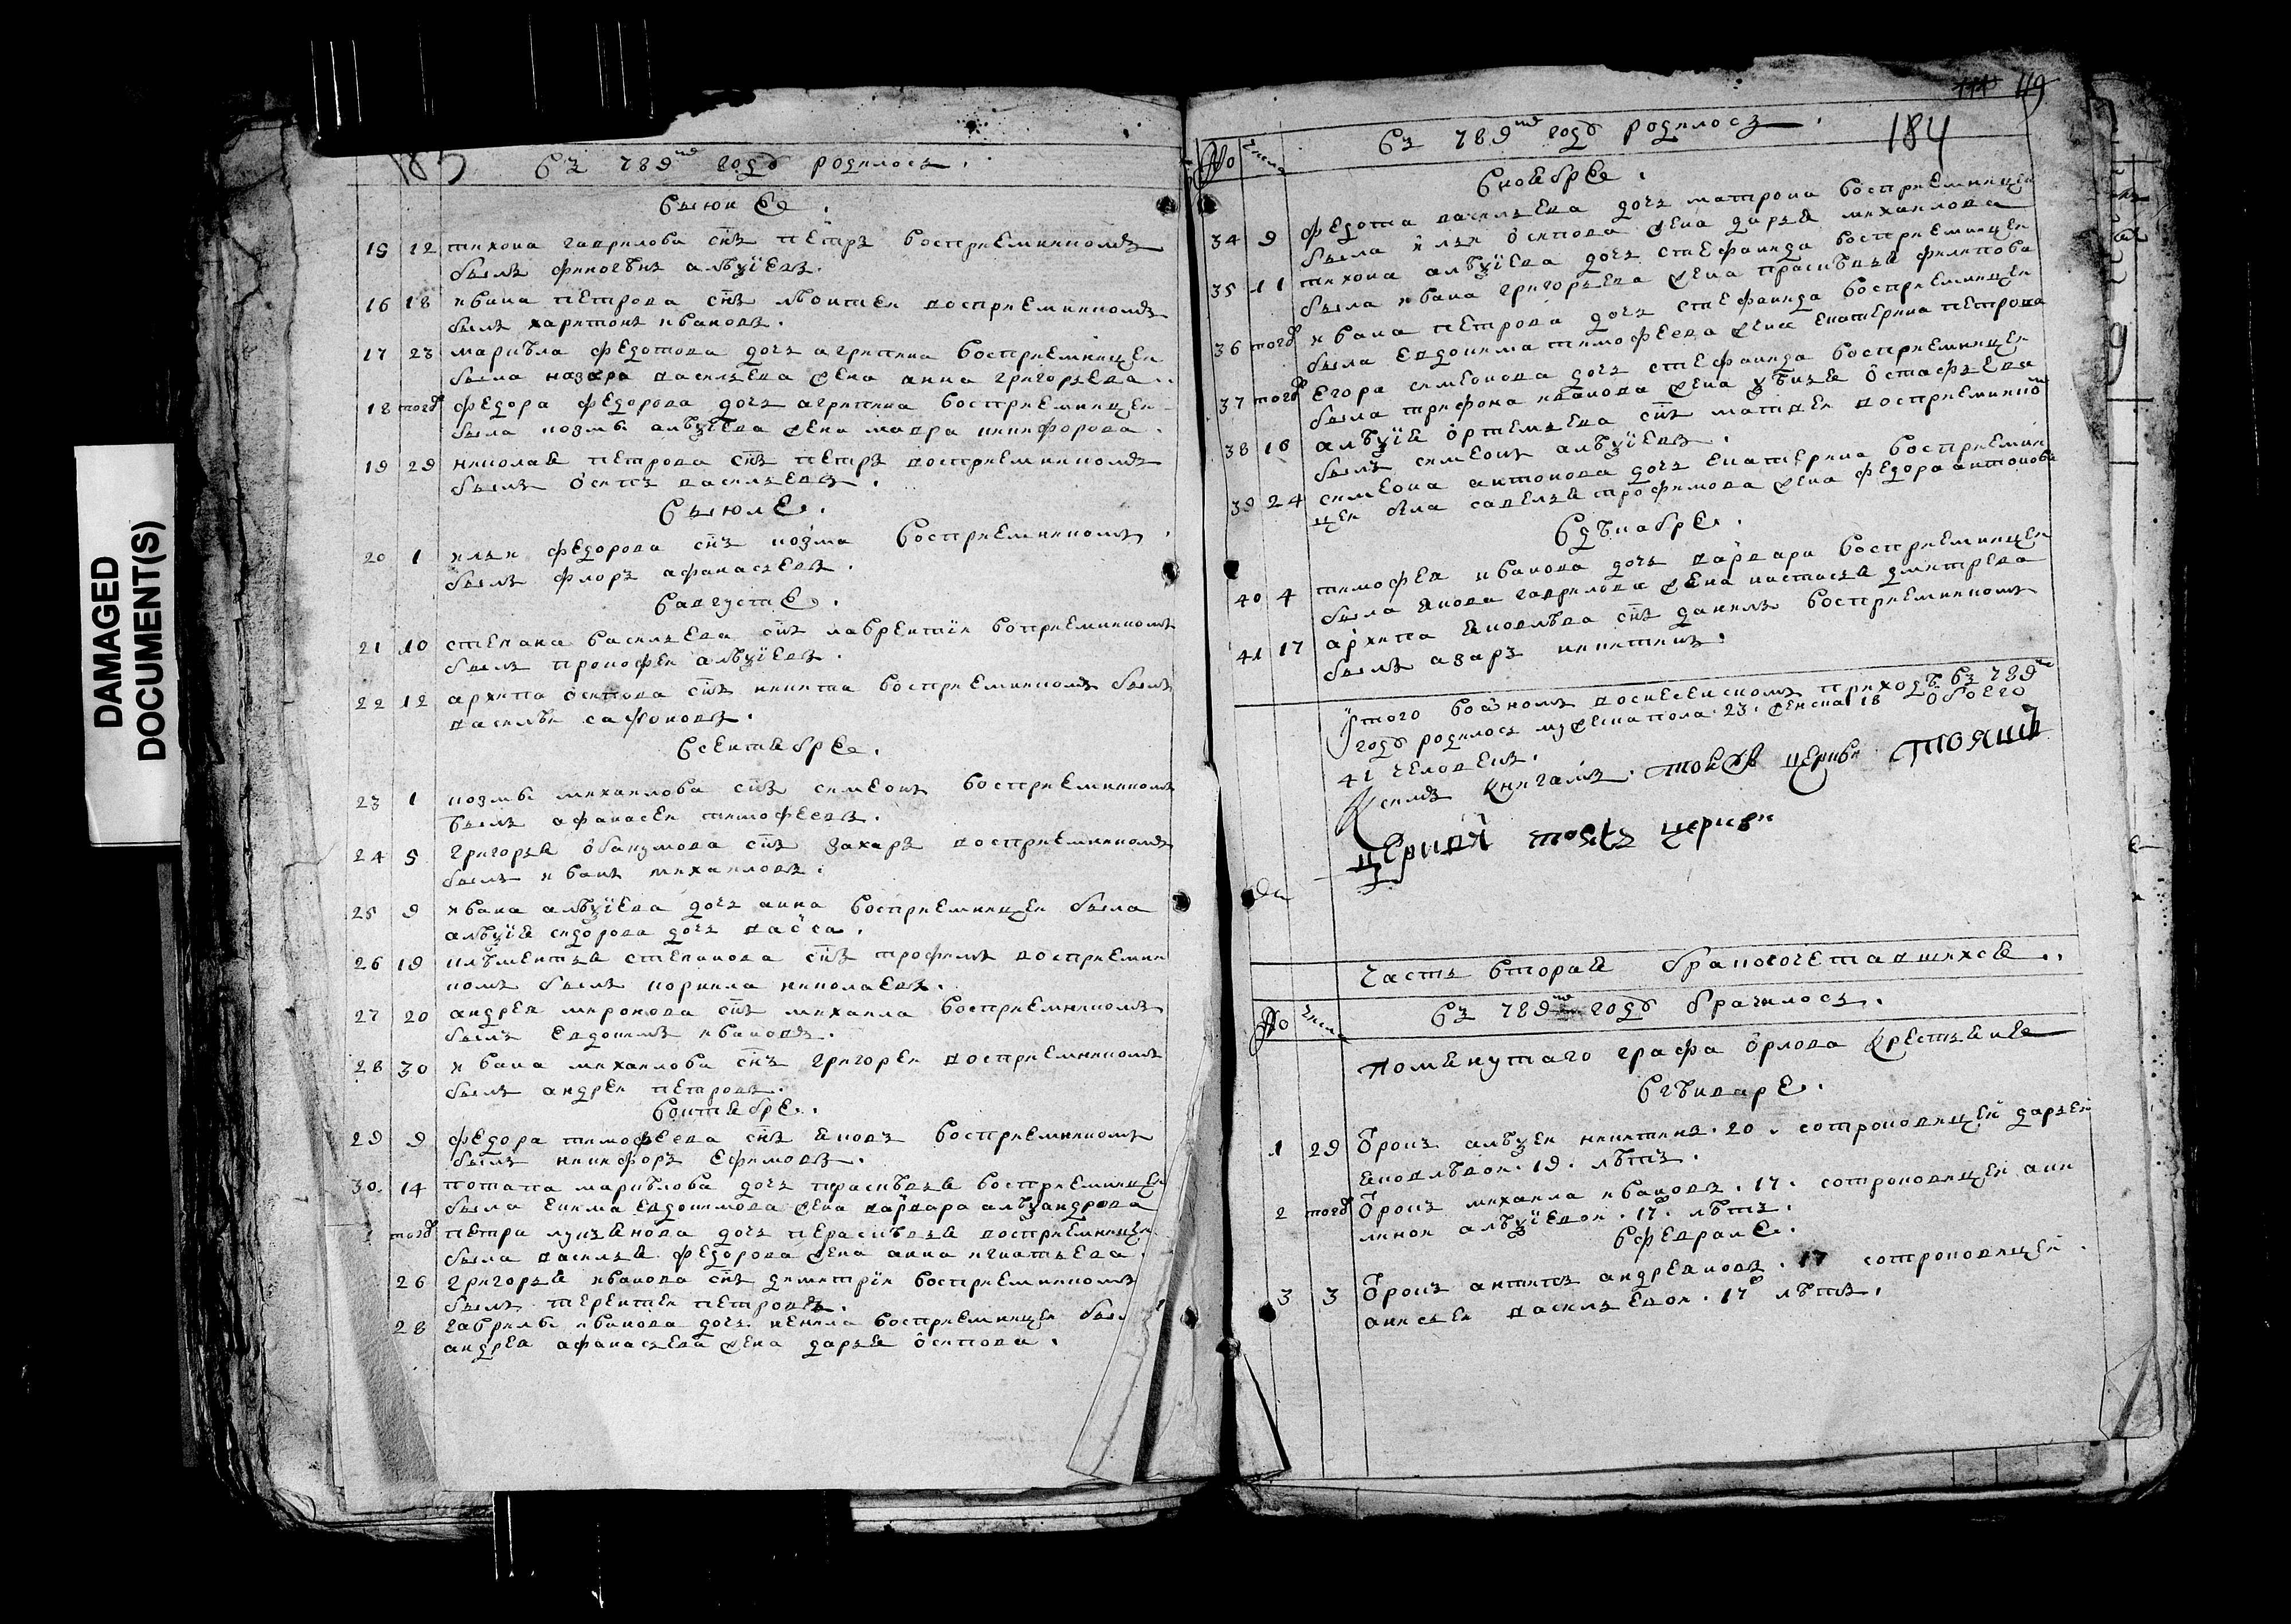 DAMAGED
DOCUMENT(S)
183
въ 789мъ годъ родилось.
выюне.
15 12 тихона гаврилова снъ петръ восприемникомъ
былъ финогѣнъ алѣѯіевъ.
16 18 ивана петрова снъ мокией восприемникомъ
былъ харитонъ ивановъ.
17 23 маркѣла федотова дочь агрипина восприемницеи
была назара василѣева жена анна григорьева.
18 тогдъ федора федорова дочь агрипина восприемницеи
была козмы алѣѯѣева жена мавра никифорова.
19 29 николая петрова снъ петръ восприемникомъ
былъ осипъ василѣевъ.
выюле.
20 1 ильи федорова снъ козма восприемникомъ
былъ флоръ афанасьевъ.
вавгусте.
21 10 степана василѣева снъ лаврентіи воприемникомъ
былъ прокофеи алѣѯіевъ.
22 12 архипа осипова снъ никита восприемникомъ былъ
василѣи сафоновъ.
всентябре.
23 1 козмы михаилова снъ симеонъ восприемникомъ
былъ афанасеи тимофеевъ.
24 5 григорья обакумова снъ захаръ восприемникомъ
былъ иванъ михаиловъ.
25 9 ивана алѣѯіева дочь анна восприемницеи была
алѣѯія сидорова дочь васса.
26 19 клѣментья степанова снъ трофимъ восприемни
комъ былъ корнила николаевъ.
27 20 андрея миронова снъ михаила восприемникомъ
былъ евдокимъ ивановъ.
28 30 ивана михаилова снъ григореи восприемникомъ
былъ андреи петровъ.
воктябре.
29 9 федора тимофеева снъ яковъ восприемникомъ
былъ никифоръ ефимовъ.
30 14 потапа маркѣлова дочь праскѣвья восприемницеи
была екима евдокимова жена варвара алѣѯандрова
тогдъ петра лукьянова дочь перасковья восприемницеи
была василья федорова жена анна игнатьева.
26 григорья иванова снъ димитріи восприемникомъ
былъ терентеи петровъ.
28 гаврилы иванова дочь ненила восприемницеи был
андрея афанасьева жена дарья осипова.
119
184
въ 789мъ годъ родилось.
№ Числа
вноябре.
34 9 федота василѣева дочь матрона восприемницеи
была ильи осипова жена дарья михаилова
35 11 тихона алѣѯіева дочь стефанида восприемницеи
была ивана григорьева жена праскѣвья филипова
36 тогдъ ивана петрова дочь стефанида восприемницеи
была евдокима тимофеева жена екатерина петрова
37 тогдъ егора симеонова дочь стефанида восприемницеи
была трифона иванова жена остафьева
38 16 алѣѯія ортемьева снъ матвеи восприемнико
былъ симеонъ алѣѯіевъ.
39 24 симеона антонова дочь екатерина восприемни
цеи была савелья трофимова жена федора антонова
вдѣкабре.
40 4 тимофея иванова дочь варвара восприемницеи
была якова гаврилова жена настасья дмитрева
41 17 архипа яковлѣва снъ данилъ восприемникомъ
былъ азаръ никитинъ.
Итого воономъ воскесенскомъ приходѣ въ 789м
годъ родилось мужеска пола. 23. женска 18 обоего
41 человекъ.
Ксимъ книгамъ. тоежъ церкви
тоежъ церкви
Часть вторая бракосочетавшихся..
№ Числа въ 789мъ годъ брачилось.
помянутаго графа орлова крестьяне
вгѣнваре.
1 29 отрокъ алѣѯеи никитинъ. 20. сотроковицеи дарьеи
яковлѣвои. 19. лѣтъ.
2 тогдъ отрокъ михаила ивановъ. 17. сотроковицеи аки
линои алѣѯіевои. 17. лѣтъ.
вфеврале.
3 3 отрокъ антипъ андреяновъ. 17 сотроковицеи.
анисьеи василѣевои. 17 лѣтъ.